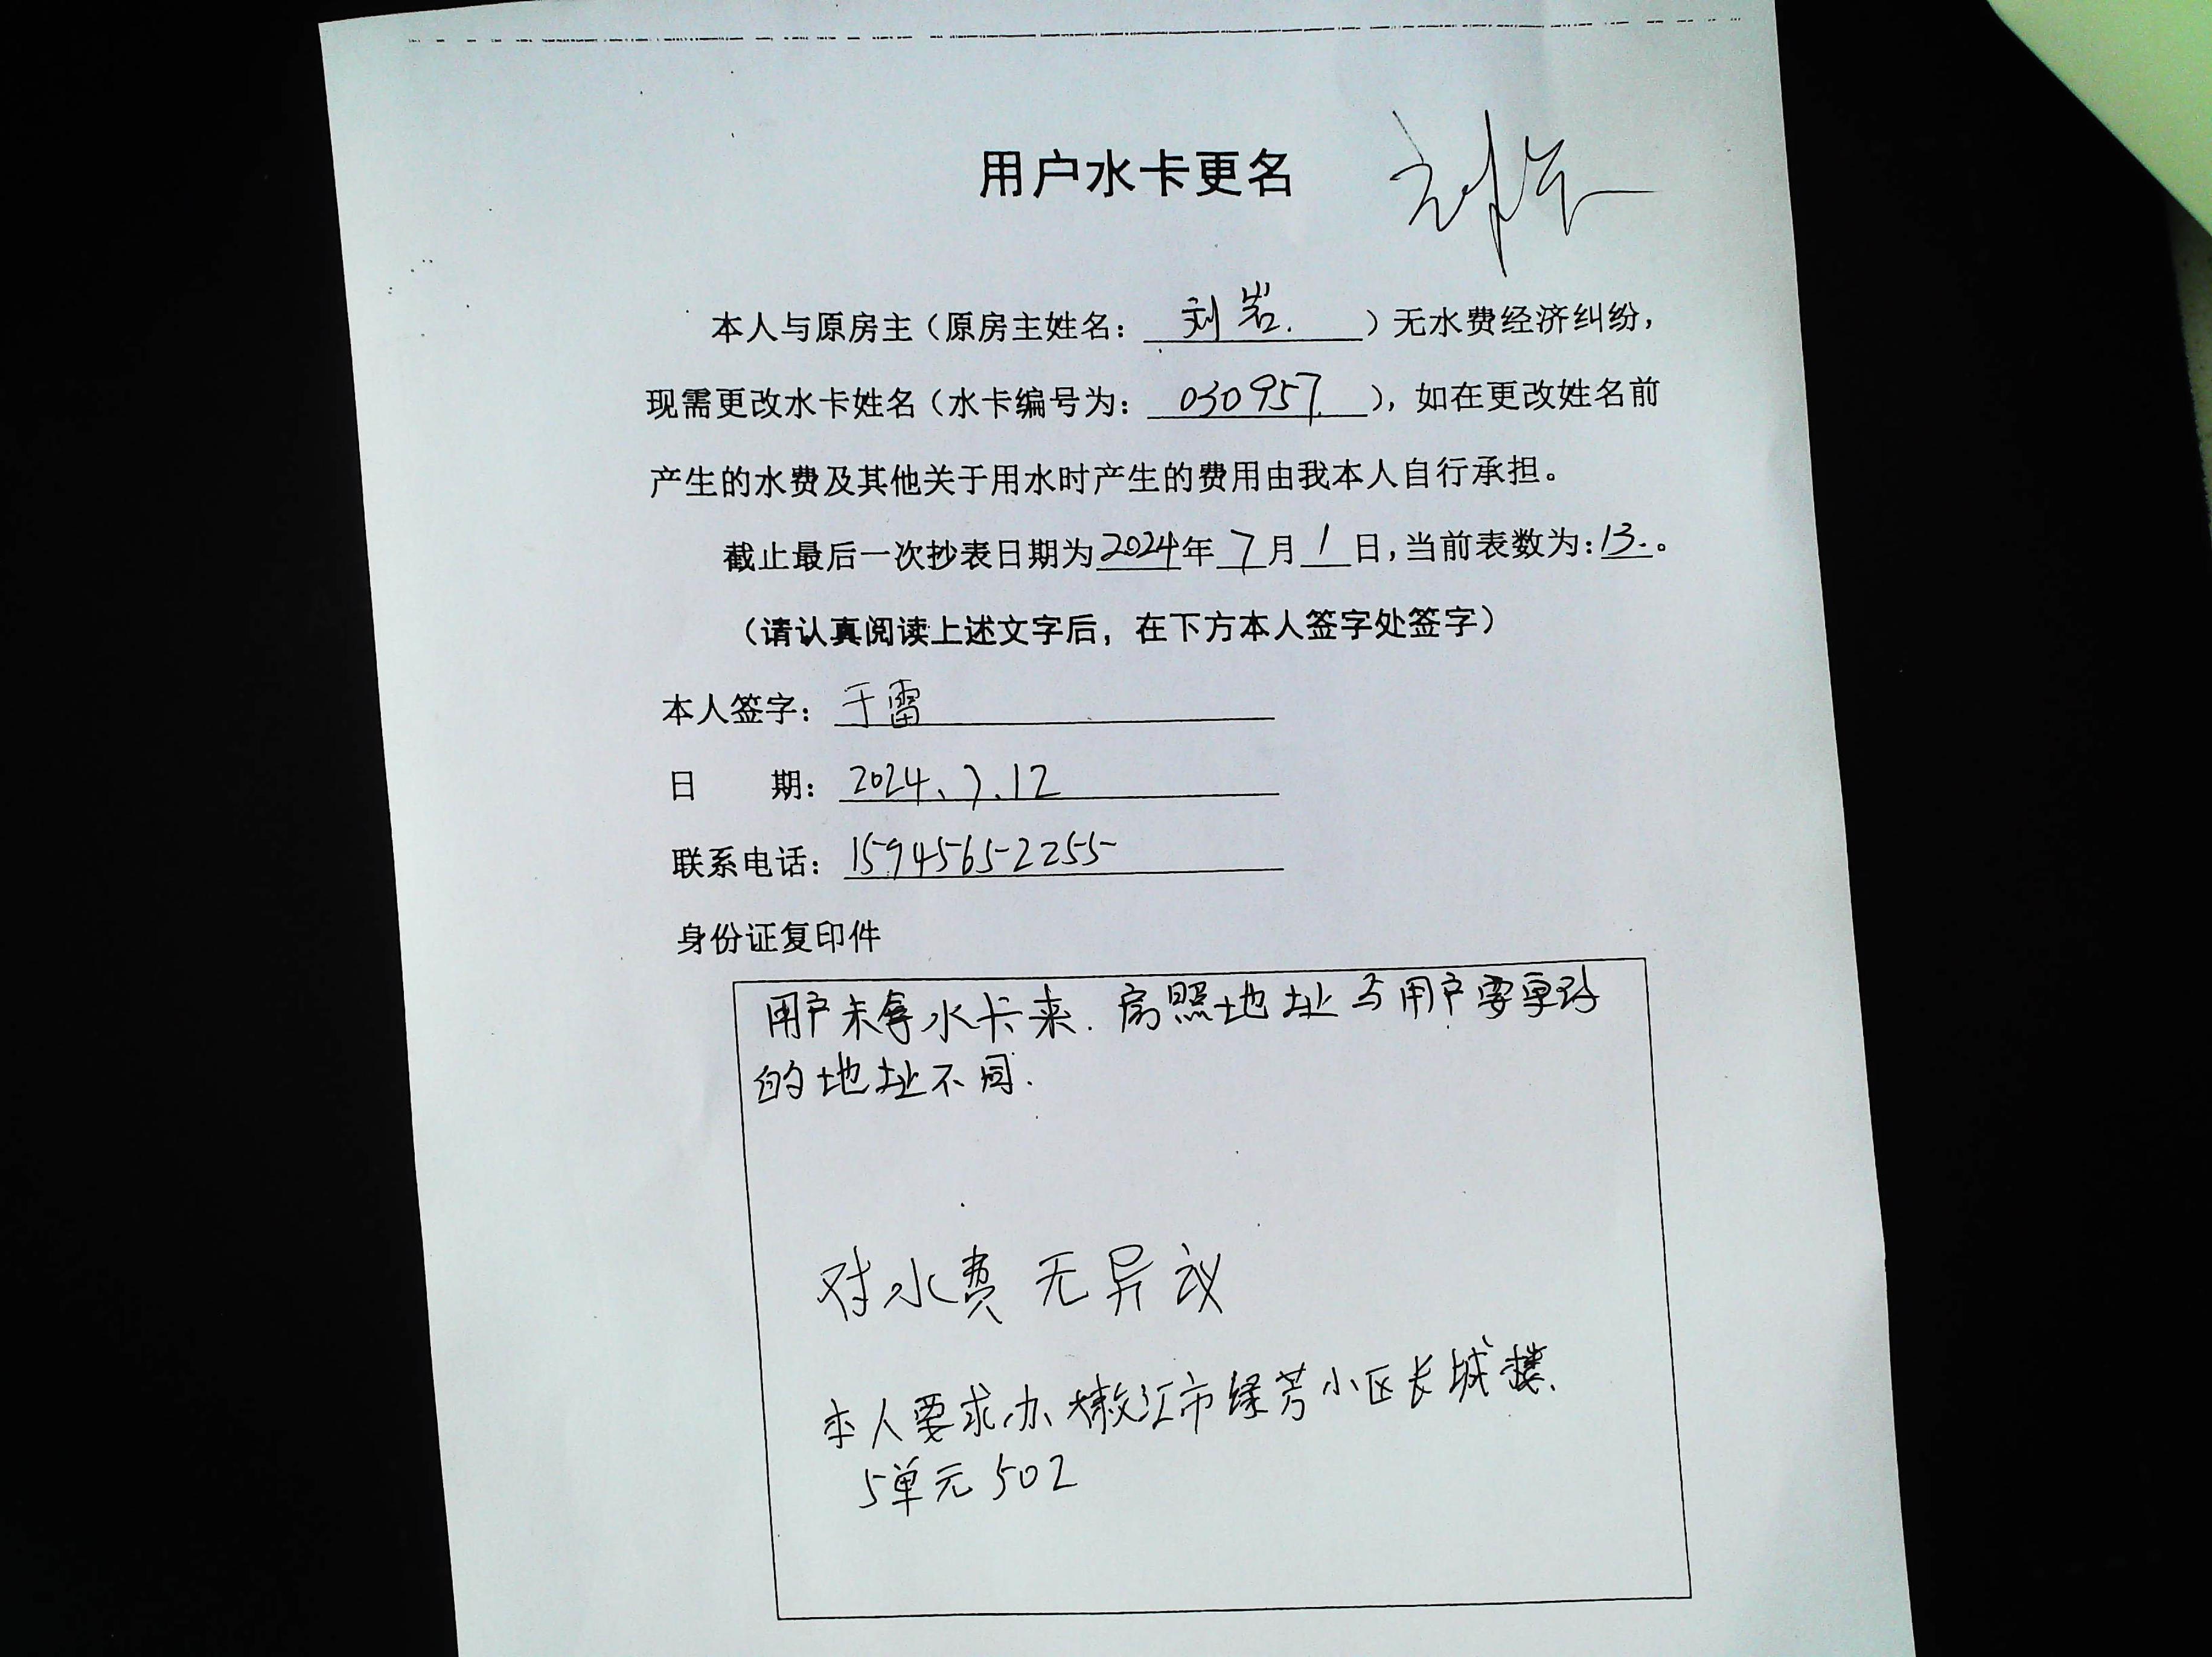 用户水卡更名
本人与原房主（原房主姓名：刘岩.）无水费经济纠纷，
现需更改水卡姓名（水卡编号为：030957），如在更改姓名前
产生的水费及其他关于用水时产生的费用由我本人自行承担。
截止最后一次抄表日期为2024年7月1日，当前表数为：13.。
（请认真阅读上述文字后，在下方本人签字处签字）
本人签字：于雷
日 期：2024、7.12
联系电话：15945652255
身份证复印件
用户未拿水卡来.房照地址与用户要更改
的地址不同.
对水费无异议
本人要求办嫩江市绿芳小区长城楼、
5单元502